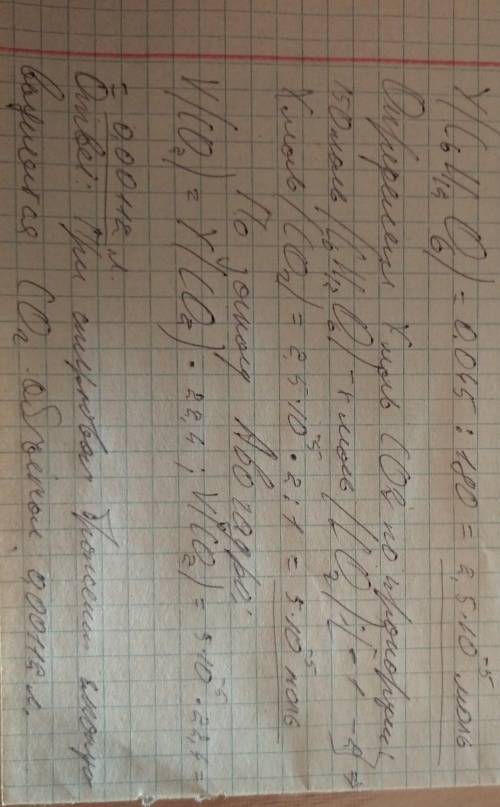 γ(C₆H₁₂O₆) = 0.045 : 180 = 2,5·10⁻⁵ моль
Определим γ моль CO₂ по пропорции:
моль (C₆H₁₂O₆) - x моль (CO₂)
X моль (CO₂) = 2,5·10⁻⁵ · 2 : 1 = 5·10⁻⁵ моль
По закону Авогадро:
V(CO₂) = γ(CO₂) · 22,4 ; V(CO₂) = 5·10⁻⁵ · 22,4 =
= 0,00112 л.
Ответ: При спиртовом брожении
выделится CO₂ объёмом 0,00112 л.